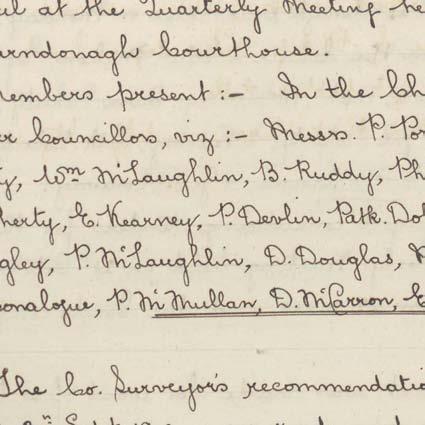 at the Quarterly Meeting he
arndonagh Courthouse.
members present :- In the Ch
er Councillors, viz :- Messrs. P. Por
y, Wm McLaughlin, B. Ruddy, Ph
herty, E. Kearney, P. Devlin, Patk. Doh
gley, P. McLaughlin, D. Douglas,
conalogue, P. McMullan, D. McCarron, E
The Co. Surveyor's recommendatio